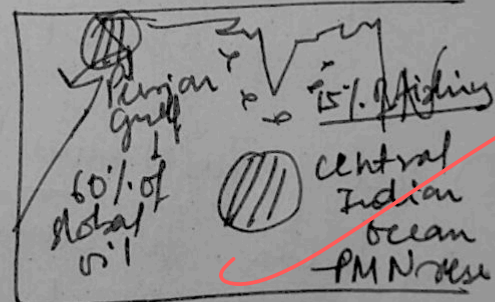 Persian
Gulf
60% of
global
oil
15% of fishing
Central
Indian
Ocean
PMN